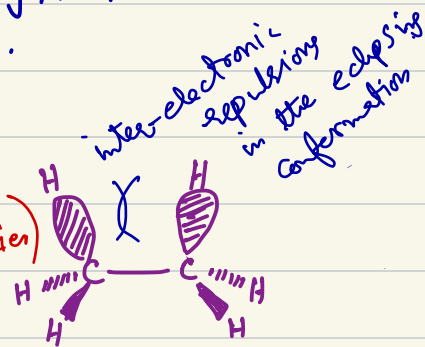 inter-electronic
repulsions
in the eclipsing
conformation
H H
C C
H H
H H